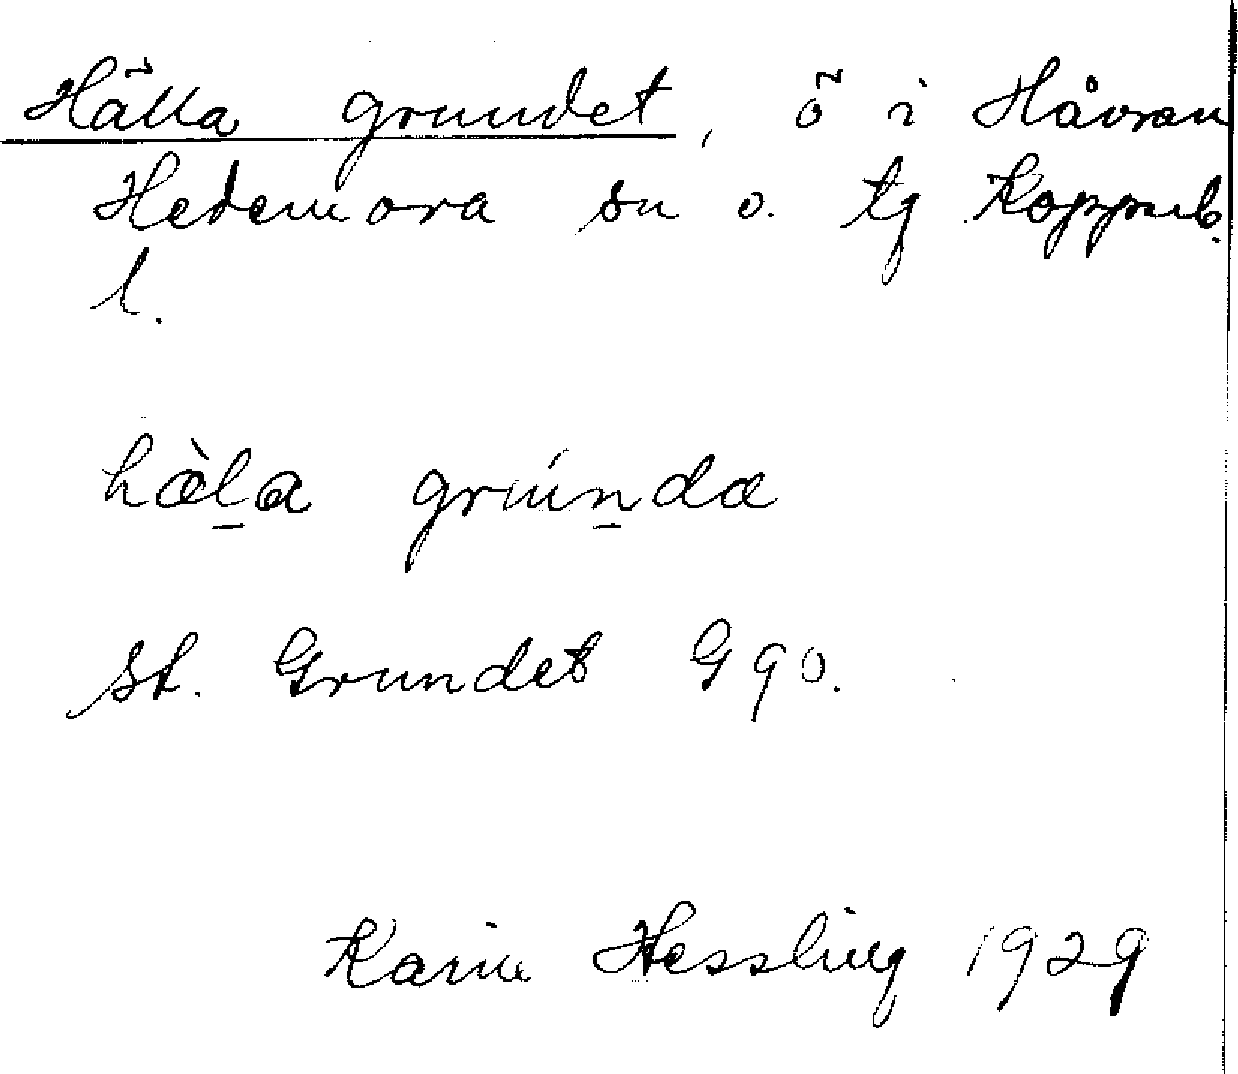 Hälla grundet, ö i Håvran
Hedemora sn o. tg Kopparb.
l.
hæ̀l̲a grún̲dæ
st. Grundet G 90.
Karin Hessling 1929